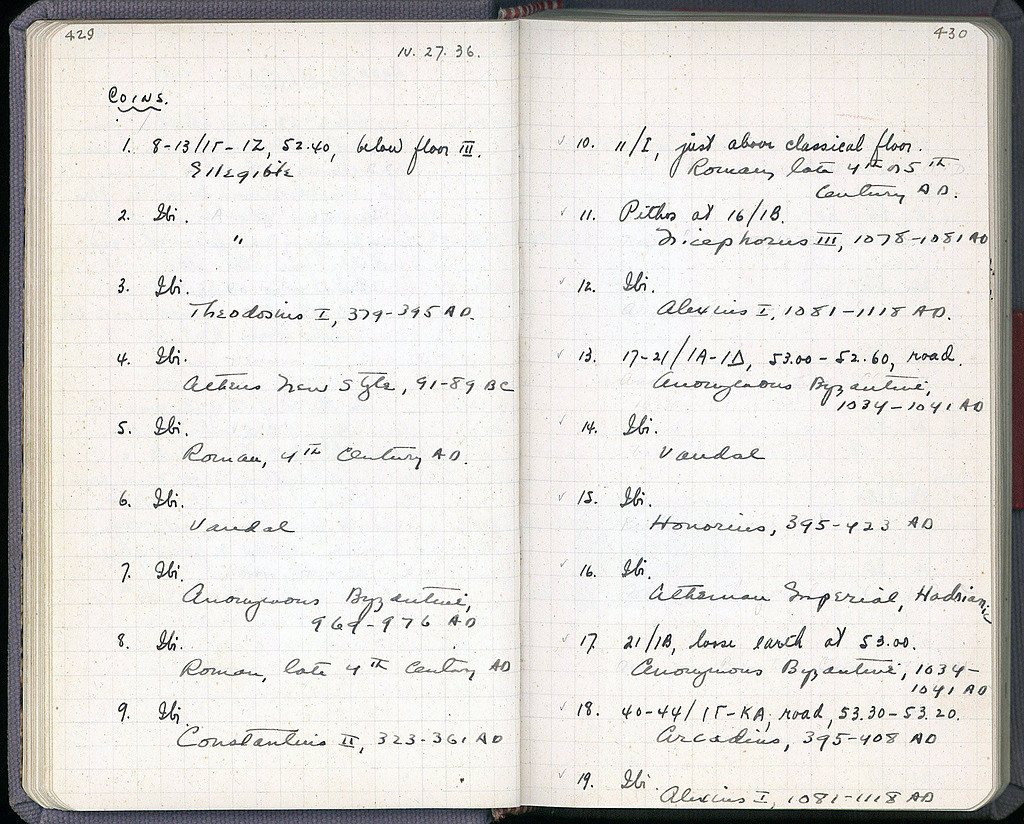 429
IV. 27. 36.
COINS.
1. 8-13/ΙΓ-ΙΖ, 52.40, below floor III.
Illegible
2. Ibi.
"
3. Ibi.
Theodosius I, 379-395 AD.
4. Ibi.
Athens New Style, 91-89 BC
5. Ibi.
Roman, 4th Century AD.
6. Ibi.
Vandal
7. Ibi.
Anonymous Byzantine,
969-976 AD
8. Ibi.
Roman, late 4th Century AD
9. Ibi.
Constantius II, 323-361 AD
430
10. 11/I, just above classical floor.
Roman, late 4th or 5th
Century AD.
11. Pithos at 16/ΙΒ.
Nicephorus III, 1078-1081 AD
12. Ibi.
Alexius I, 1081-1118 AD.
13. 17-21/ΙΑ-ΙΔ, 53.00-52.60, road.
Anonymous Byzantine,
1034-1041 AD
14. Ibi.
Vandal
15. Ibi.
Honorius, 395-423 AD
16. Ibi.
Athenian Imperial, Hadrianic
17. 21/ΙΒ, loose earth at 53.00.
Anonymous Byzantine, 1034-
1041 AD
18. 40-44/ΙΓ-ΚΑ, road, 53.30-53.20.
Arcadius, 395-408 AD
19. Ibi.
Alexius I, 1081-1118 AD